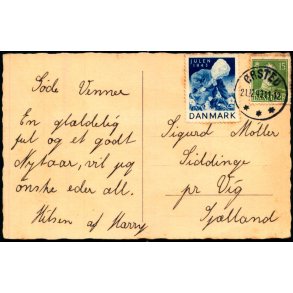 Søde Venner
En glædelig
jul og et godt
Nytaar, vil jeg
ønske eder all.
Hilsen af Harry
JULEN
1942
DANMARK
ØRSTED
15
Sigurd Møller
Siddinge
pr Vig
Sjælland